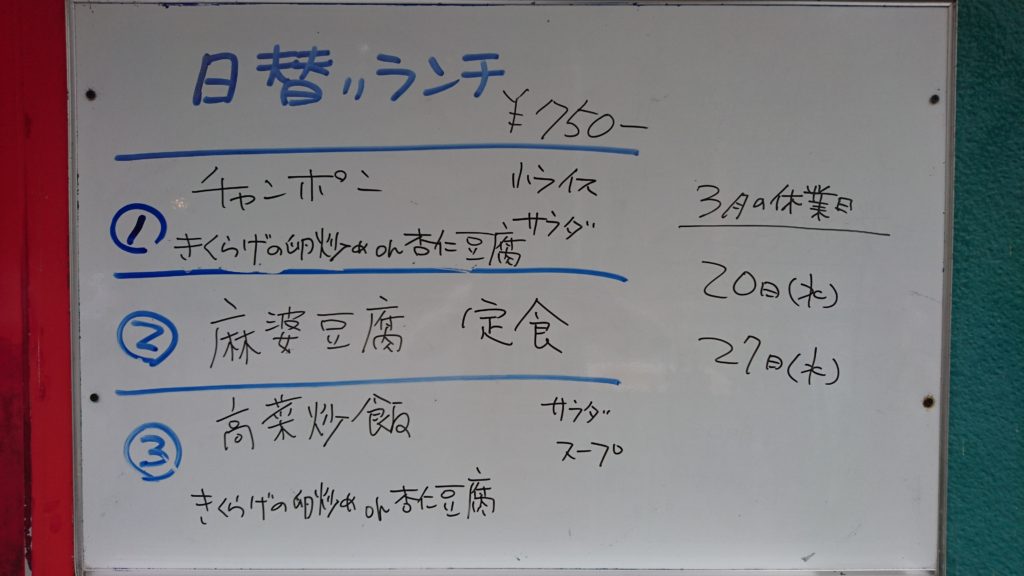 日替りランチ
¥750ー
① チャンポン 小ライス
サラダ
きくらげの卵炒め or 杏仁豆腐
② 麻婆豆腐 定食
③ 高菜炒飯 サラダ
スープ
きくらげの卵炒め or 杏仁豆腐
3月の休業日
20日(水)
27日(水)